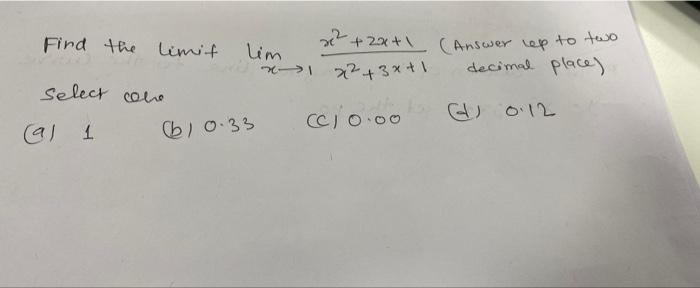 Find the limit lim x→1 x²+2x+1 / x²+3x+1 (Answer up to two decimal place)
Select one
(a) 1 (b) 0.33 (c) 0.00 (d) 0.12